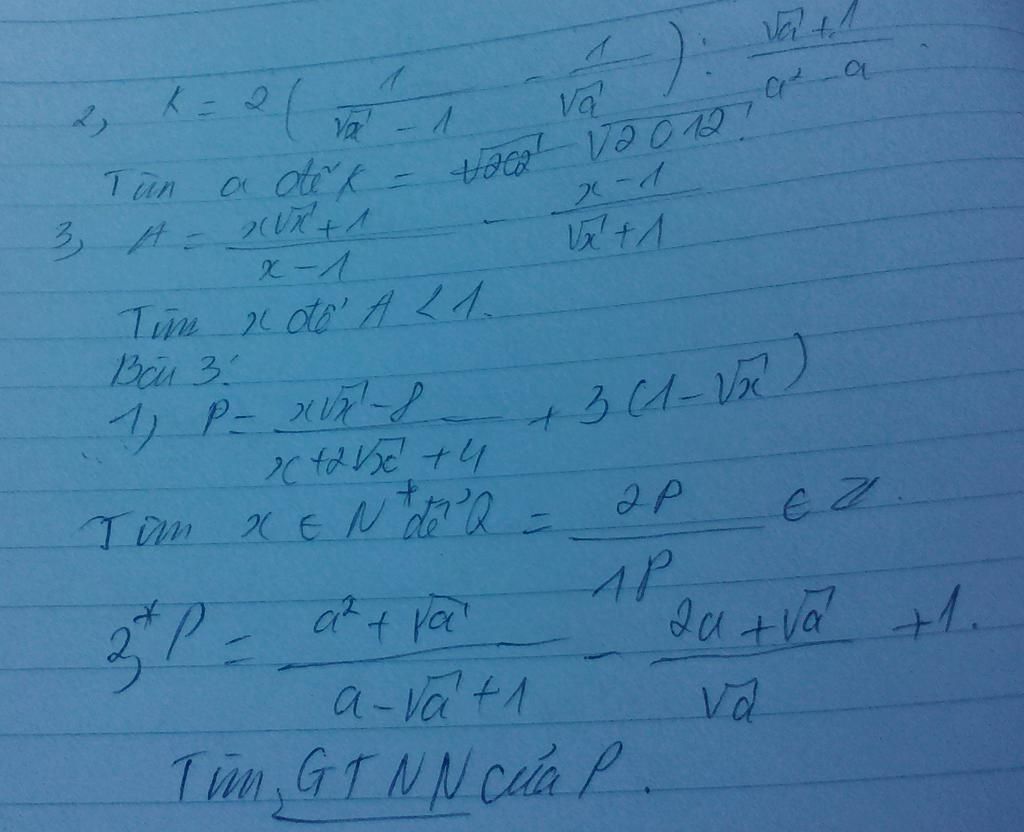 2, K = 2 ( 1/(√a - 1) - 1/√a ) : (√a + 1)/(a² - a) .
Tìm a để K = √2012 .
3, A = (x√x + 1)/(x - 1) - (x - 1)/(√x + 1)
Tìm x để A < 1.
Bài 3:
1, P = (x√x - 8)/(x + 2√x + 4) + 3(1 - √x)
Tìm x ∈ N* để Q = 2P/1P ∈ Z.
2,* P = (a² + √a)/(a - √a + 1) - (2a + √a)/√a + 1.
Tìm GTNN của P.